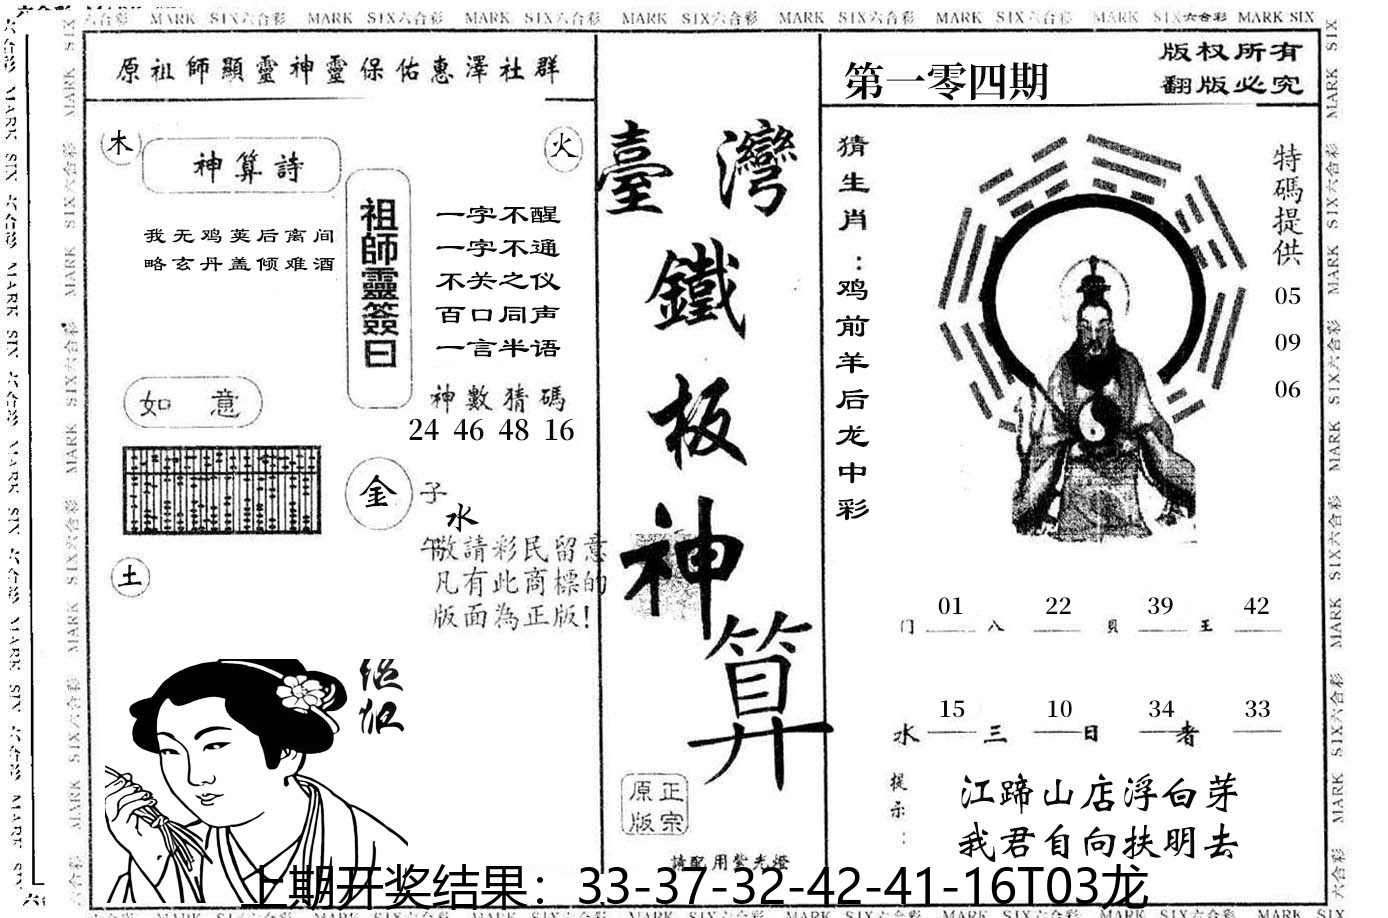 MARK SIX六合彩 MARK SIX六合彩 MARK SIX六合彩 MARK SIX六合彩 MARK SIX六合彩 MARK SIX六合彩 MARK SIX六合彩 MARK SIX
原祖師顯靈神靈保佑惠澤社群
木
神算詩
火
我无鸡荚后离间
略玄丹盖倾难酒
祖師靈簽曰
一字不醒
一字不通
不关之仪
百口同声
一言半语
神數猜碼
24 46 48 16
如意
金
子
水
午
土
敬請彩民留意
凡有此商標的
版面為正版!
臺灣
鐵
板
神
算
正宗
原版
請配用紫光燈
第一零四期
版权所有
翻版必究
猜生肖:鸡前羊后龙中彩
特碼提供
05
09
06
01 22 39 42
门 八 貝 王
15 10 34 33
水 三 日 者
提示:
江蹄山店浮白芽
我君自向扶明去
上期开奖结果：33-37-32-42-41-16T03龙